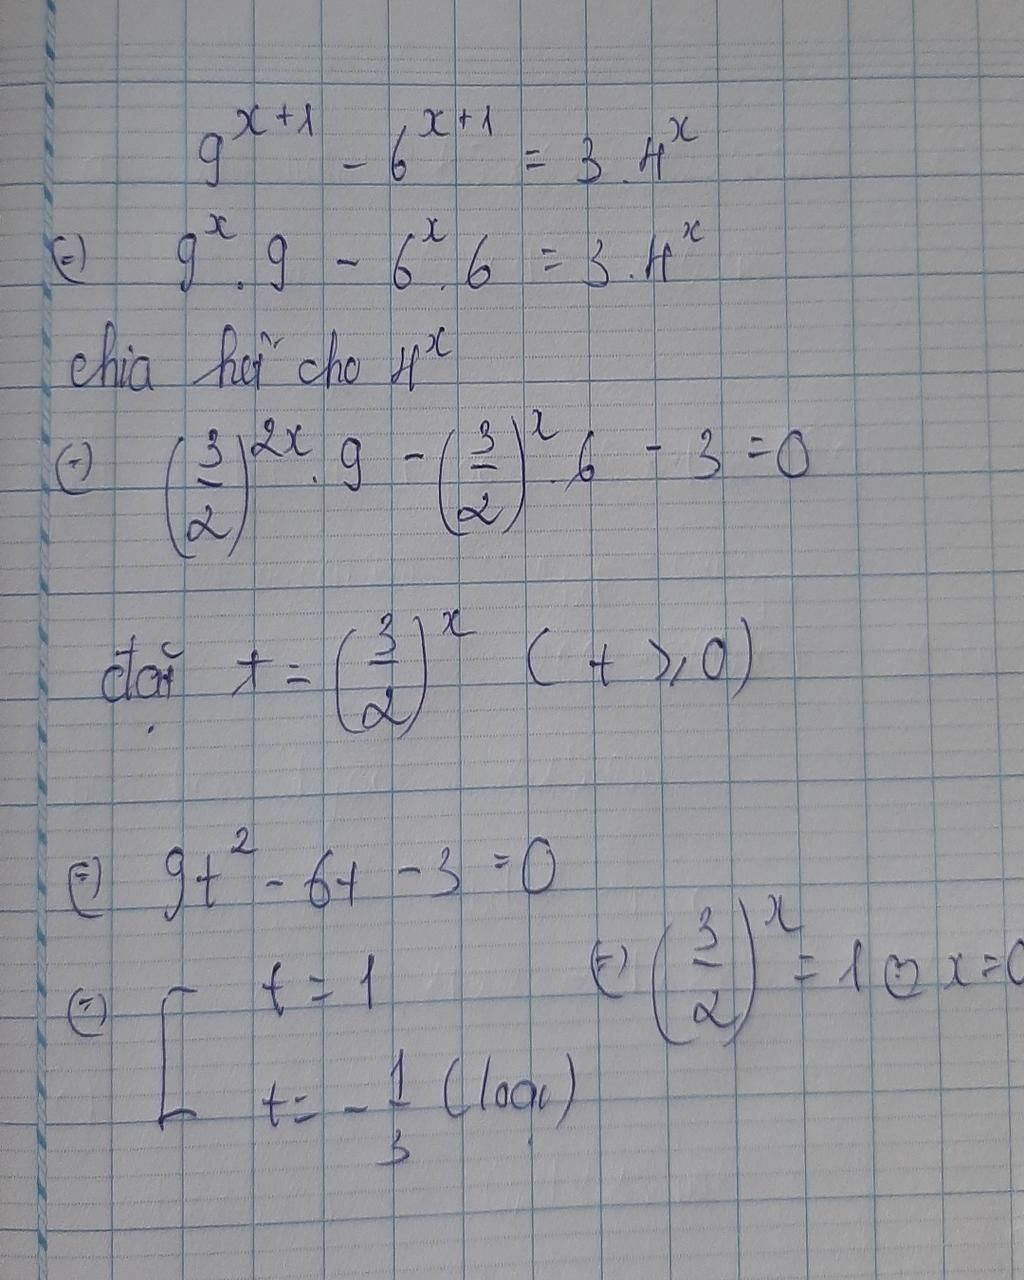 9^{x+1} - 6^{x+1} = 3.4^x
(=) 9^x.9 - 6^x.6 = 3.4^x
chia hết cho 4^x
(=) (3/2)^{2x}.9 - (3/2)^x.6 - 3 = 0
đặt t = (3/2)^x (t ⩾ 0)
(=) 9t^2 - 6t - 3 = 0
(=) [ t = 1 (=) (3/2)^x = 1 (=) x = 0
t = -1/3 (loại)